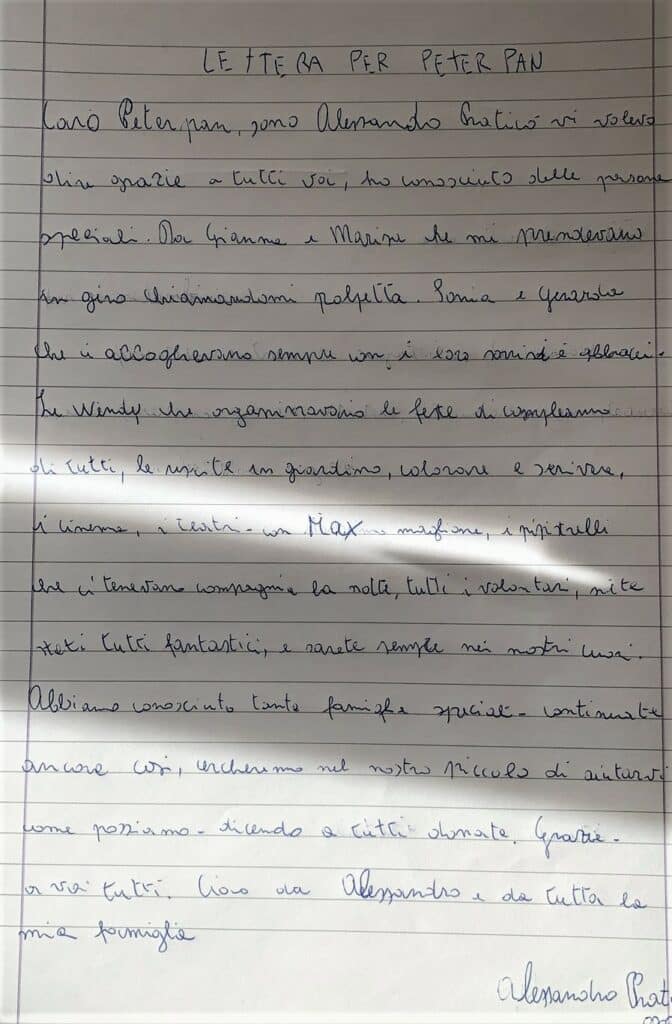 LETTERA PER PETER PAN
Caro Peter pan, sono Alessandro Praticò vi volevo
dire grazie a tutti voi, ho conosciuto delle persone
speciali. Da Gianna e Marisa che mi prendevano
in giro chiamandomi polpetta. Sonia e Gerardo
che ci accoglievano sempre con i loro sorrisi e abbracci.
Le Wendy che organizzavano le feste di compleanno
di tutti, le uscite in giardino, colorare e scrivere,
i cinema, i teatri con Max maglione, i pipitrelli
che ci tenevano compagnia la notte, tutti i volontari, siete
stati tutti fantastici, e sarete semple nei nostri cuori.
Abbiamo conosciuto tante famiglie speciali - continuate
ancora così, cercheremo nel nostro piccolo di aiutarvi
come possiamo - dicendo a tutti donate. Grazie -
a voi tutti. Ciao da Alessandro e da tutta la
mia famiglia
Alessandro Prat